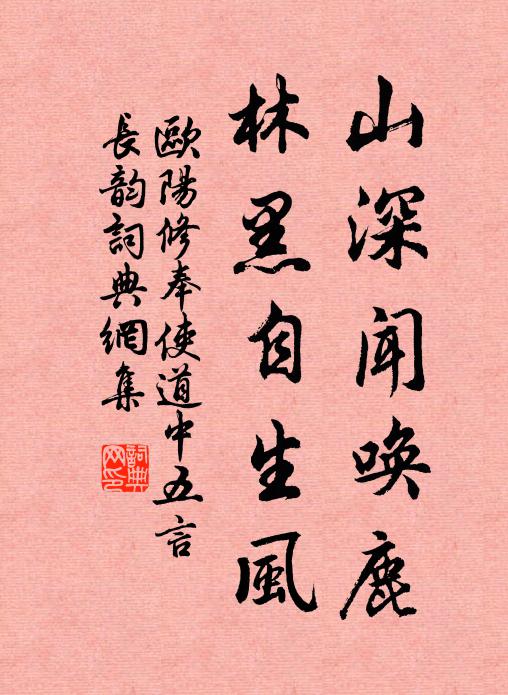 山深聞喚鹿
林黑自生風
歐陽修奉使道中五言
長韵詞典網集
詞典
网印